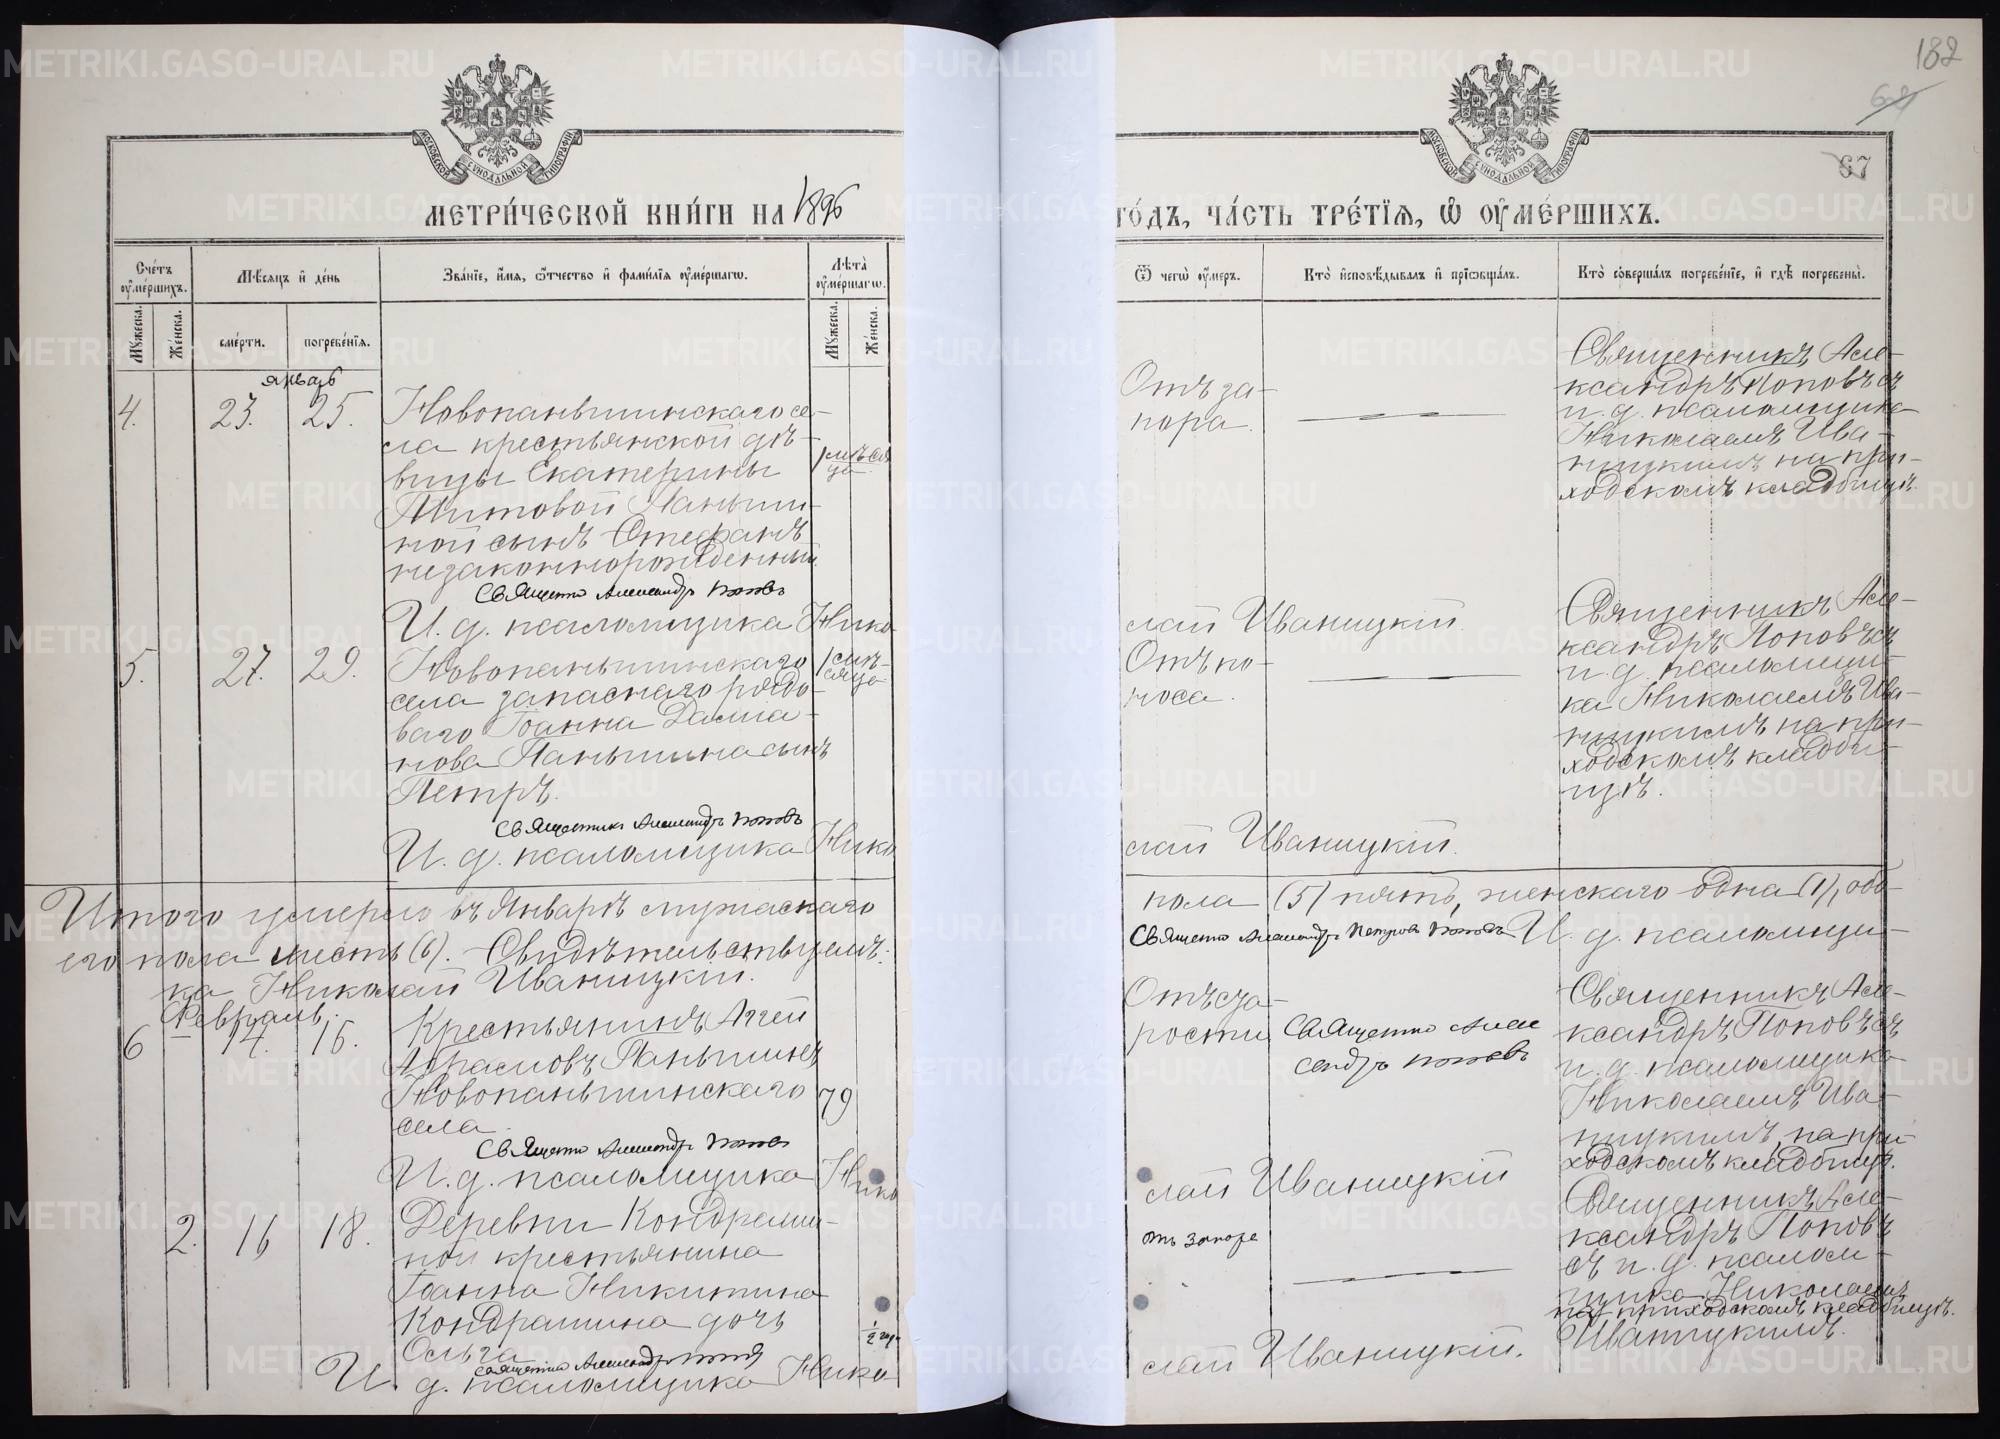 182
67
МЕТРИ́ЧЕСКОЙ КНИ́ГИ НА 1896
ГО́ДЪ, ЧА́СТЬ ТРЕ́ТЇѦ, Ѡ҆ ОУ҆МЕ́РШИХЪ.
МОСКОВСКОЙ СѴНОДАЛЬНОЙ ТИПОГРАФІИ
МОСКОВСКОЙ СѴНОДАЛЬНОЙ ТИПОГРАФІИ
Сче́тъ оу҆ме́ршихъ.
Мѣ́сѧцъ и҆ де́нь
Зва́нїе, и҆́мѧ, ѻ҆́тчество и҆ фами́лїѧ оу҆ме́ршагѡ.
Лѣ́та оу҆ме́ршагѡ.
Ѿ чегѡ̀ оу҆́меръ.
Кто̀ и҆сповѣ́дывалъ и҆ прїѡбща́лъ.
Кто̀ соверша́лъ погребе́нїе, и҆ гдѣ̀ погребены̀.
Мꙋ́жеска.
Же́нска.
сме́рти.
погребе́нїѧ.
Мꙋ́жеска.
Же́нска.
январь
4. 23. 25.
Новопаньшинскаго се-
ла крестьянской дѣ-
вицы Екатерины
Титовой Паньши-
ной сынъ Стефанъ
незаконнорожденный.
1 мѣся
ца
Отъ за-
пора.
Священникъ Але-
ксандръ Поповъ съ
и. д. псаломщика
Николаемъ Ива-
ницкимъ на при-
ходскомъ кладбищѣ.
Священникъ Александръ Поповъ
И. д. псаломщика Нико-
лай Иваницкій.
5. 27. 29.
Новопаньшинскаго
села запаснаго рядо-
ваго Іоанна Дамиа-
нова Паньшина сынъ
Петръ.
1 мѣ-
сяца
Отъ по-
носа.
Священникъ Але-
ксандръ Поповъ съ
и. д. псаломщи-
ка Николаемъ Ива-
ницкимъ на при-
ходскомъ кладби-
щѣ.
Священникъ Александръ Поповъ
И. д. псаломщика Нико
лай Иваницкій.
Итого умерло въ Январѣ мужескаго
пола (5) пять, женскаго одна (1), обо-
его пола шесть (6). Свидѣтельствуемъ:
Священникъ Александръ Петровъ Поповъ И. д. псаломщи-
ка Николай Иваницкій.
Февраль.
6 14. 16.
Крестьянинъ Аггей
Абрамовъ Паньшинъ
Новопаньшинскаго
села.
79
Отъ ста-
рости
Священникъ Алек
сандръ Поповъ
Священникъ Але-
ксандръ Поповъ съ
и. д. псаломщика
Николаемъ Ива-
ницкимъ, на при-
ходскомъ кладбищѣ.
Священникъ Александръ Поповъ
И. д. псаломщика Нико
лай Иваницкій
2. 16 18.
Деревни Кондраши-
ной крестьянина
Іоанна Никитина
Кондрашина дочь
Ольга
1/2 года
отъ запора
Священникъ Але-
ксандръ Поповъ
съ и. д. псалом-
щика Николаемъ
на приходскомъ кладбищѣ.
Иваницкимъ.
Священникъ Александръ Поповъ
И. д. псаломщика Нико
лай Иваницкій.
METRIKI.GASO-URAL.RU